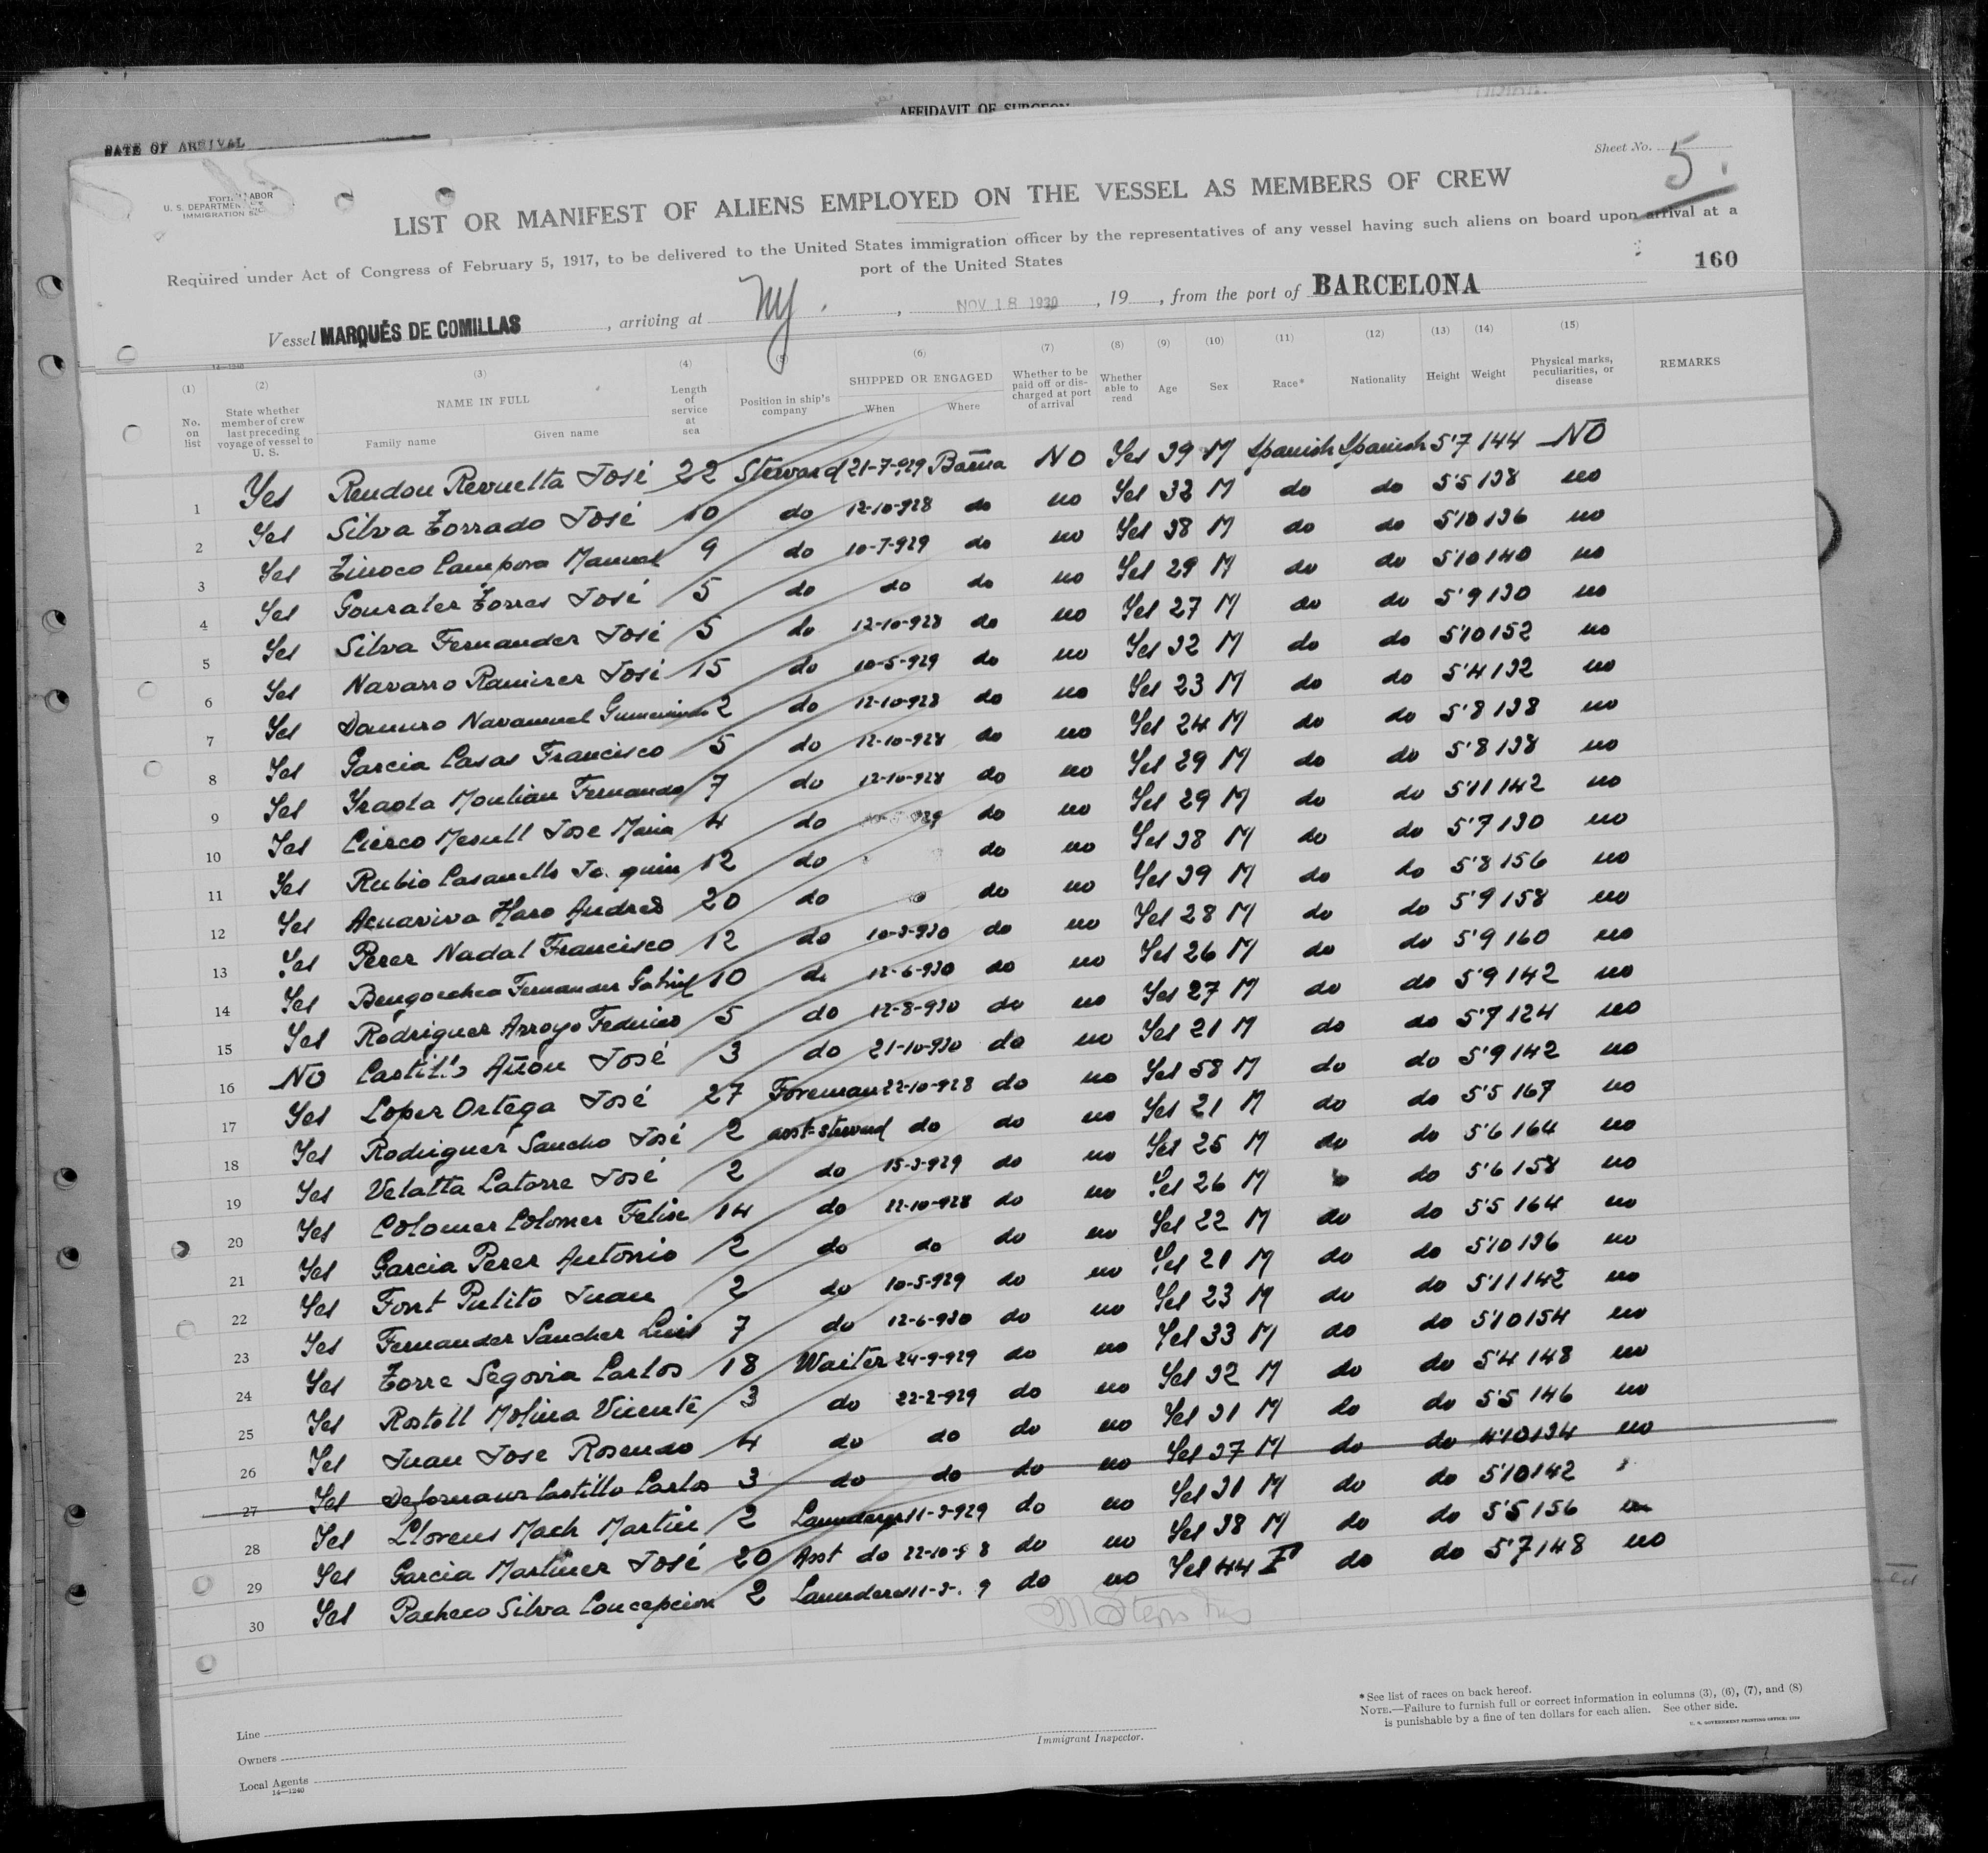 AFFIDAVIT OF SURGEON
DATE OF ARRIVAL
Sheet No. 5.
U. S. DEPARTMENT LABOR
IMMIGRATION
LIST OR MANIFEST OF ALIENS EMPLOYED ON THE VESSEL AS MEMBERS OF CREW
Required under Act of Congress of February 5, 1917, to be delivered to the United States immigration officer by the representatives of any vessel having such aliens on board upon arrival at a
port of the United States
160
Vessel MARQUÉS DE COMILLAS, arriving at NY. , NOV 18 1930, 19 , from the port of BARCELONA
14—1240
(1) (2) (3) (4) (5) (6) (7) (8) (9) (10) (11) (12) (13) (14) (15)
No. on list State whether member of crew last preceding voyage of vessel to U. S. NAME IN FULL Family name Given name Length of service at sea Position in ship's company SHIPPED OR ENGAGED When Where Whether to be paid off or discharged at port of arrival Whether able to read Age Sex Race* Nationality Height Weight Physical marks, peculiarities, or disease REMARKS
1 Yes Rendon Revuelta José 22 Steward 21-7-929 Barna NO Yes 39 M Spanish Spanish 5'7 144 NO
2 Yes Silva Torrado José 10 do 12-10-928 do no Yes 32 M do do 5'5 138 no
3 Yes Tinoco Campora Manuel 9 do 10-7-929 do no Yes 38 M do do 5'10 136 no
4 Yes Gonzalez Torres José 5 do do do no Yes 29 M do do 5'10 140 no
5 Yes Silva Fernandez José 5 do 12-10-928 do no Yes 27 M do do 5'9 130 no
6 Yes Navarro Ramirez José 15 do 10-5-929 do no Yes 32 M do do 5'10 152 no
7 Yes Navamuel 2 do 12-10-928 do no Yes 23 M do do 5'4 132 no
8 Yes Garcia Casas Francisco 5 do 12-10-928 do no Yes 24 M do do 5'8 138 no
9 Yes Yraola Montian Fernando 7 do 12-10-928 do no Yes 29 M do do 5'8 138 no
10 Yes Cierco Mesull Jose Maria 4 do 929 do no Yes 29 M do do 5'11 142 no
11 Yes Rubio Casanells Jo quin 12 do do no Yes 38 M do do 5'7 130 no
12 Yes Acuaviva Haro Andres 20 do do no Yes 39 M do do 5'8 156 no
13 Yes Perez Nadal Francisco 12 do 10-3-930 do no Yes 28 M do do 5'9 158 no
14 Yes Bengoechea Fernandez Gabriel 10 do 12-6-930 do no Yes 26 M do do 5'9 160 no
15 Yes Rodriguez Arroyo Federico 5 do 12-8-930 do no Yes 27 M do do 5'9 142 no
16 NO Castillo Añon José 3 do 21-10-930 do no Yes 21 M do do 5'7 124 no
17 Yes Lopez Ortega José 27 Foreman 22-10-928 do no Yes 58 M do do 5'9 142 no
18 Yes Rodriguez Sancho José 2 asst-steward do do no Yes 21 M do do 5'5 167 no
19 Yes Velatta Latorre José 2 do 15-3-929 do no Yes 25 M do do 5'6 164 no
20 Yes Colomer Colomer Felix 14 do 22-10-928 do no Yes 26 M do do 5'6 158 no
21 Yes Garcia Perez Antonio 2 do do do no Yes 22 M do do 5'5 164 no
22 Yes Font Pulito Juan 2 do 10-5-929 do no Yes 21 M do do 5'10 136 no
23 Yes Fernandez Sanchez Luis 7 do 12-6-930 do no Yes 23 M do do 5'11 142 no
24 Yes Torre Segovia Carlos 18 Waiter 24-9-929 do no Yes 33 M do do 5'10 154 no
25 Yes Rostoll Molina Vicente 3 do 22-2-929 do no Yes 32 M do do 5'4 148 no
26 Yes Juan Jose Rosendo 4 do do do no Yes 31 M do do 5'5 146 no
27 Yes Castillo Carlos 3 do do do no Yes 37 M do do 4'10 134 no
28 Yes Llorens Mach Martin 2 11-3-929 do no Yes 31 M do do 5'10 142
29 Yes Garcia Martinez José 20 Asst do 22-10-9 8 do no Yes 38 M do do 5'5 156 no
30 Yes Pacheco Silva Concepcion 2 Laundress 11-3- 9 do no Yes 44 F do do 5'7 148 no
Line
Owners
Local Agents
14—1240
Immigrant Inspector.
*See list of races on back hereof.
NOTE.—Failure to furnish full or correct information in columns (3), (6), (7), and (8)
is punishable by a fine of ten dollars for each alien. See other side.
U. S. GOVERNMENT PRINTING OFFICE: 1929